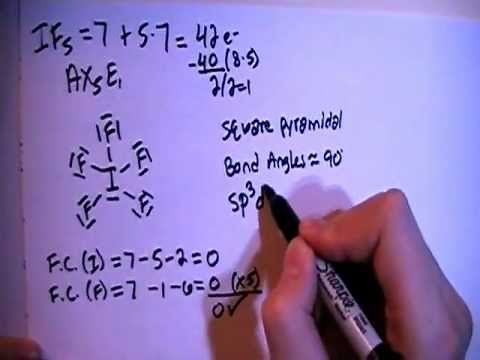 IF5 = 7 + 5·7 = 42 e-
-40 (8·5)
2/2=1
AX5E1
Square Pyramidal
F
F F
I
F F
Bond Angles ≈ 90°
sp³d
F.C.(I) = 7-5-2 = 0
F.C.(F) = 7 -1-6 = 0 (x5)
0✓
Sharpie